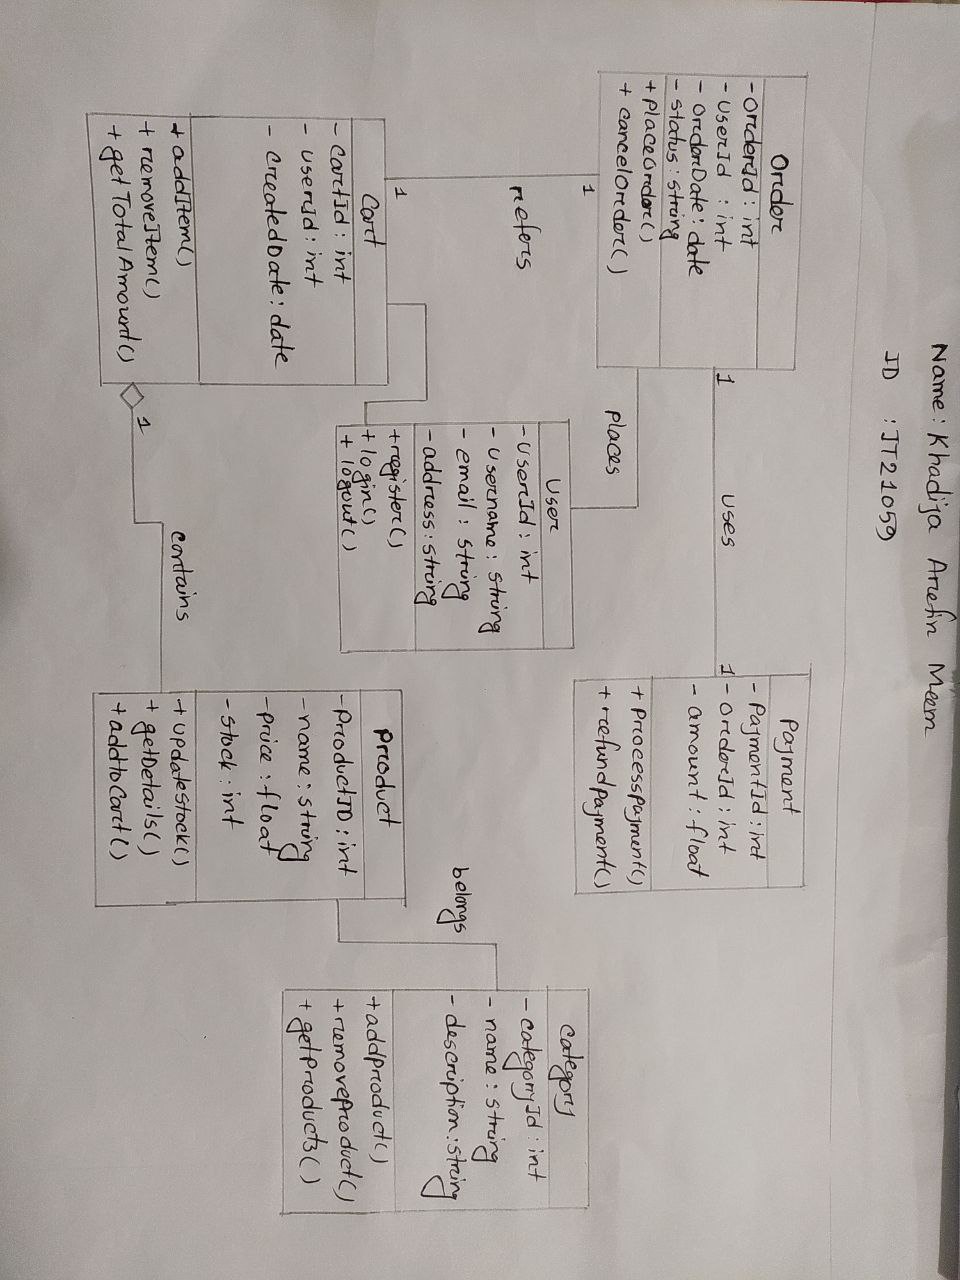 Name: Khadija Arefin Meem
ID : IT21059
Order
- OrderId : int
- UserId : int
- OrderDate : date
- status : string
+ PlaceOrder()
+ cancelOrder()
1
uses
1
Payment
- PaymentId : int
- OrderId : int
- amount : float
+ ProcessPayment()
+ refundpayment()
places
1
refers
1
User
- UserId : int
- Username : string
- email : string
- address : string
+ register()
+ login()
+ logout()
Category
- categoryId : int
- name : string
- description : string
+ addproduct()
+ removeproduct()
+ getproducts()
belongs
Cart
- CartId : int
- userId : int
- CreatedDate : date
+ addItem()
+ removeItem()
+ getTotalAmount()
1
contains
Product
- ProductID : int
- name : string
- price : float
- stock : int
+ updatestock()
+ getDetails()
+ addtoCart()